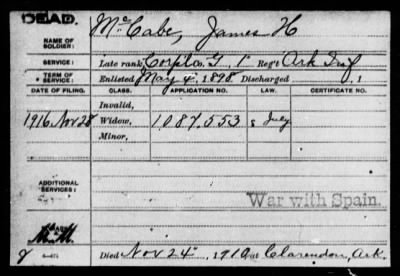 DEAD.
NAME OF SOLDIER: McCabe, James H
SERVICE: Late rank Corpl Co. G, 1" Reg't Ark Inf
TERM OF SERVICE: Enlisted May 4, 1898 Discharged , 1
DATE OF FILING. CLASS. APPLICATION NO. LAW. CERTIFICATE NO.
Invalid,
1916 Nov 28 Widow, 1087,553 S July
Minor,
ADDITIONAL SERVICES:
War with Spain.
Died Nov 24", 1910, at Clarendon, Ark.